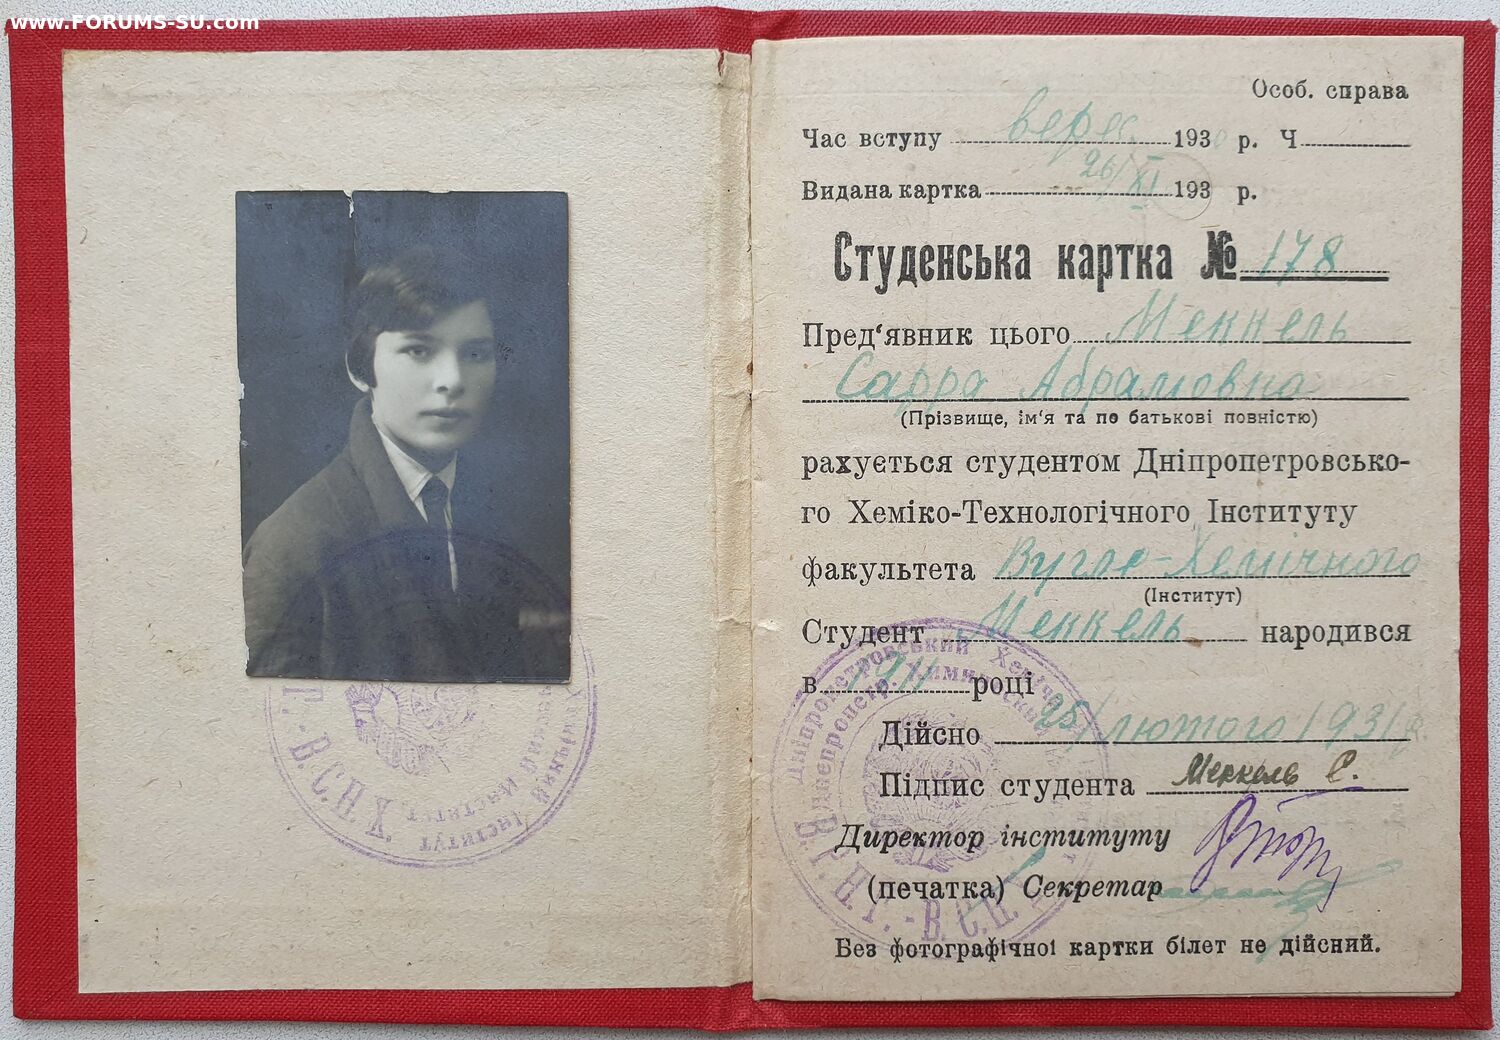 www.FORUMS-SU.com
Особ. справа
Час вступу верес. 1930 р. Ч.
Видана картка 26/XI 193 р.
Студенська картка № 178
Пред‘явник цього Меккель
Сарра Абрамовна
(Прізвище, ім‘я та по батькові повністю)
рахується студентом Дніпропетровсько-
го Хеміко-Технологічного Інституту
факультета Вугле-Хемічного
(Інститут)
Студент Меккель народився
в 1911 році
Дійсно 25/ лютого 1931 р.
Підпис студента Меккель С.
Директор інституту
(печатка) Секретар
Без фотографічної картки білет не дійсний.
Дніпропетровський
В.С.Н.Х.
Інститут